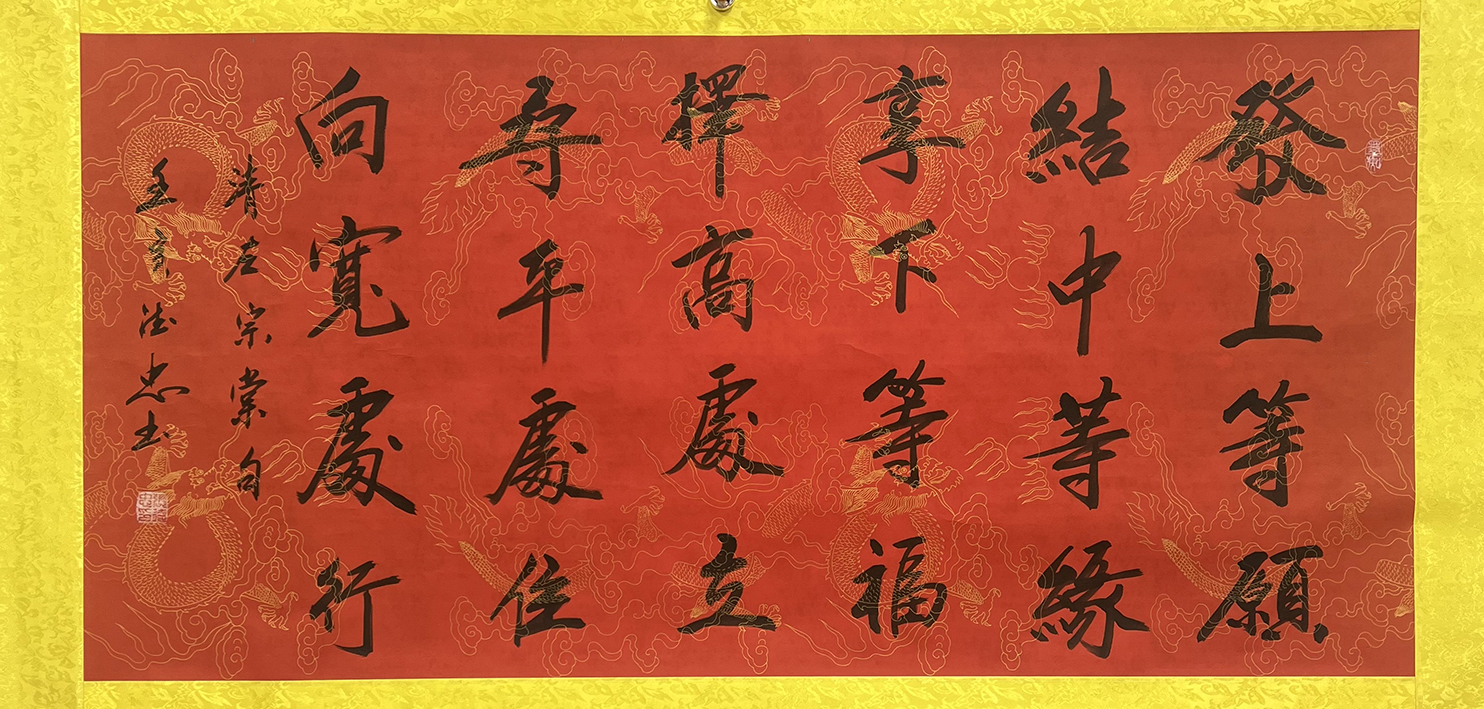 發上等願
結中等緣
享下等福
擇高處立
尋平處住
向寬處行
清左宗棠句
德忠书